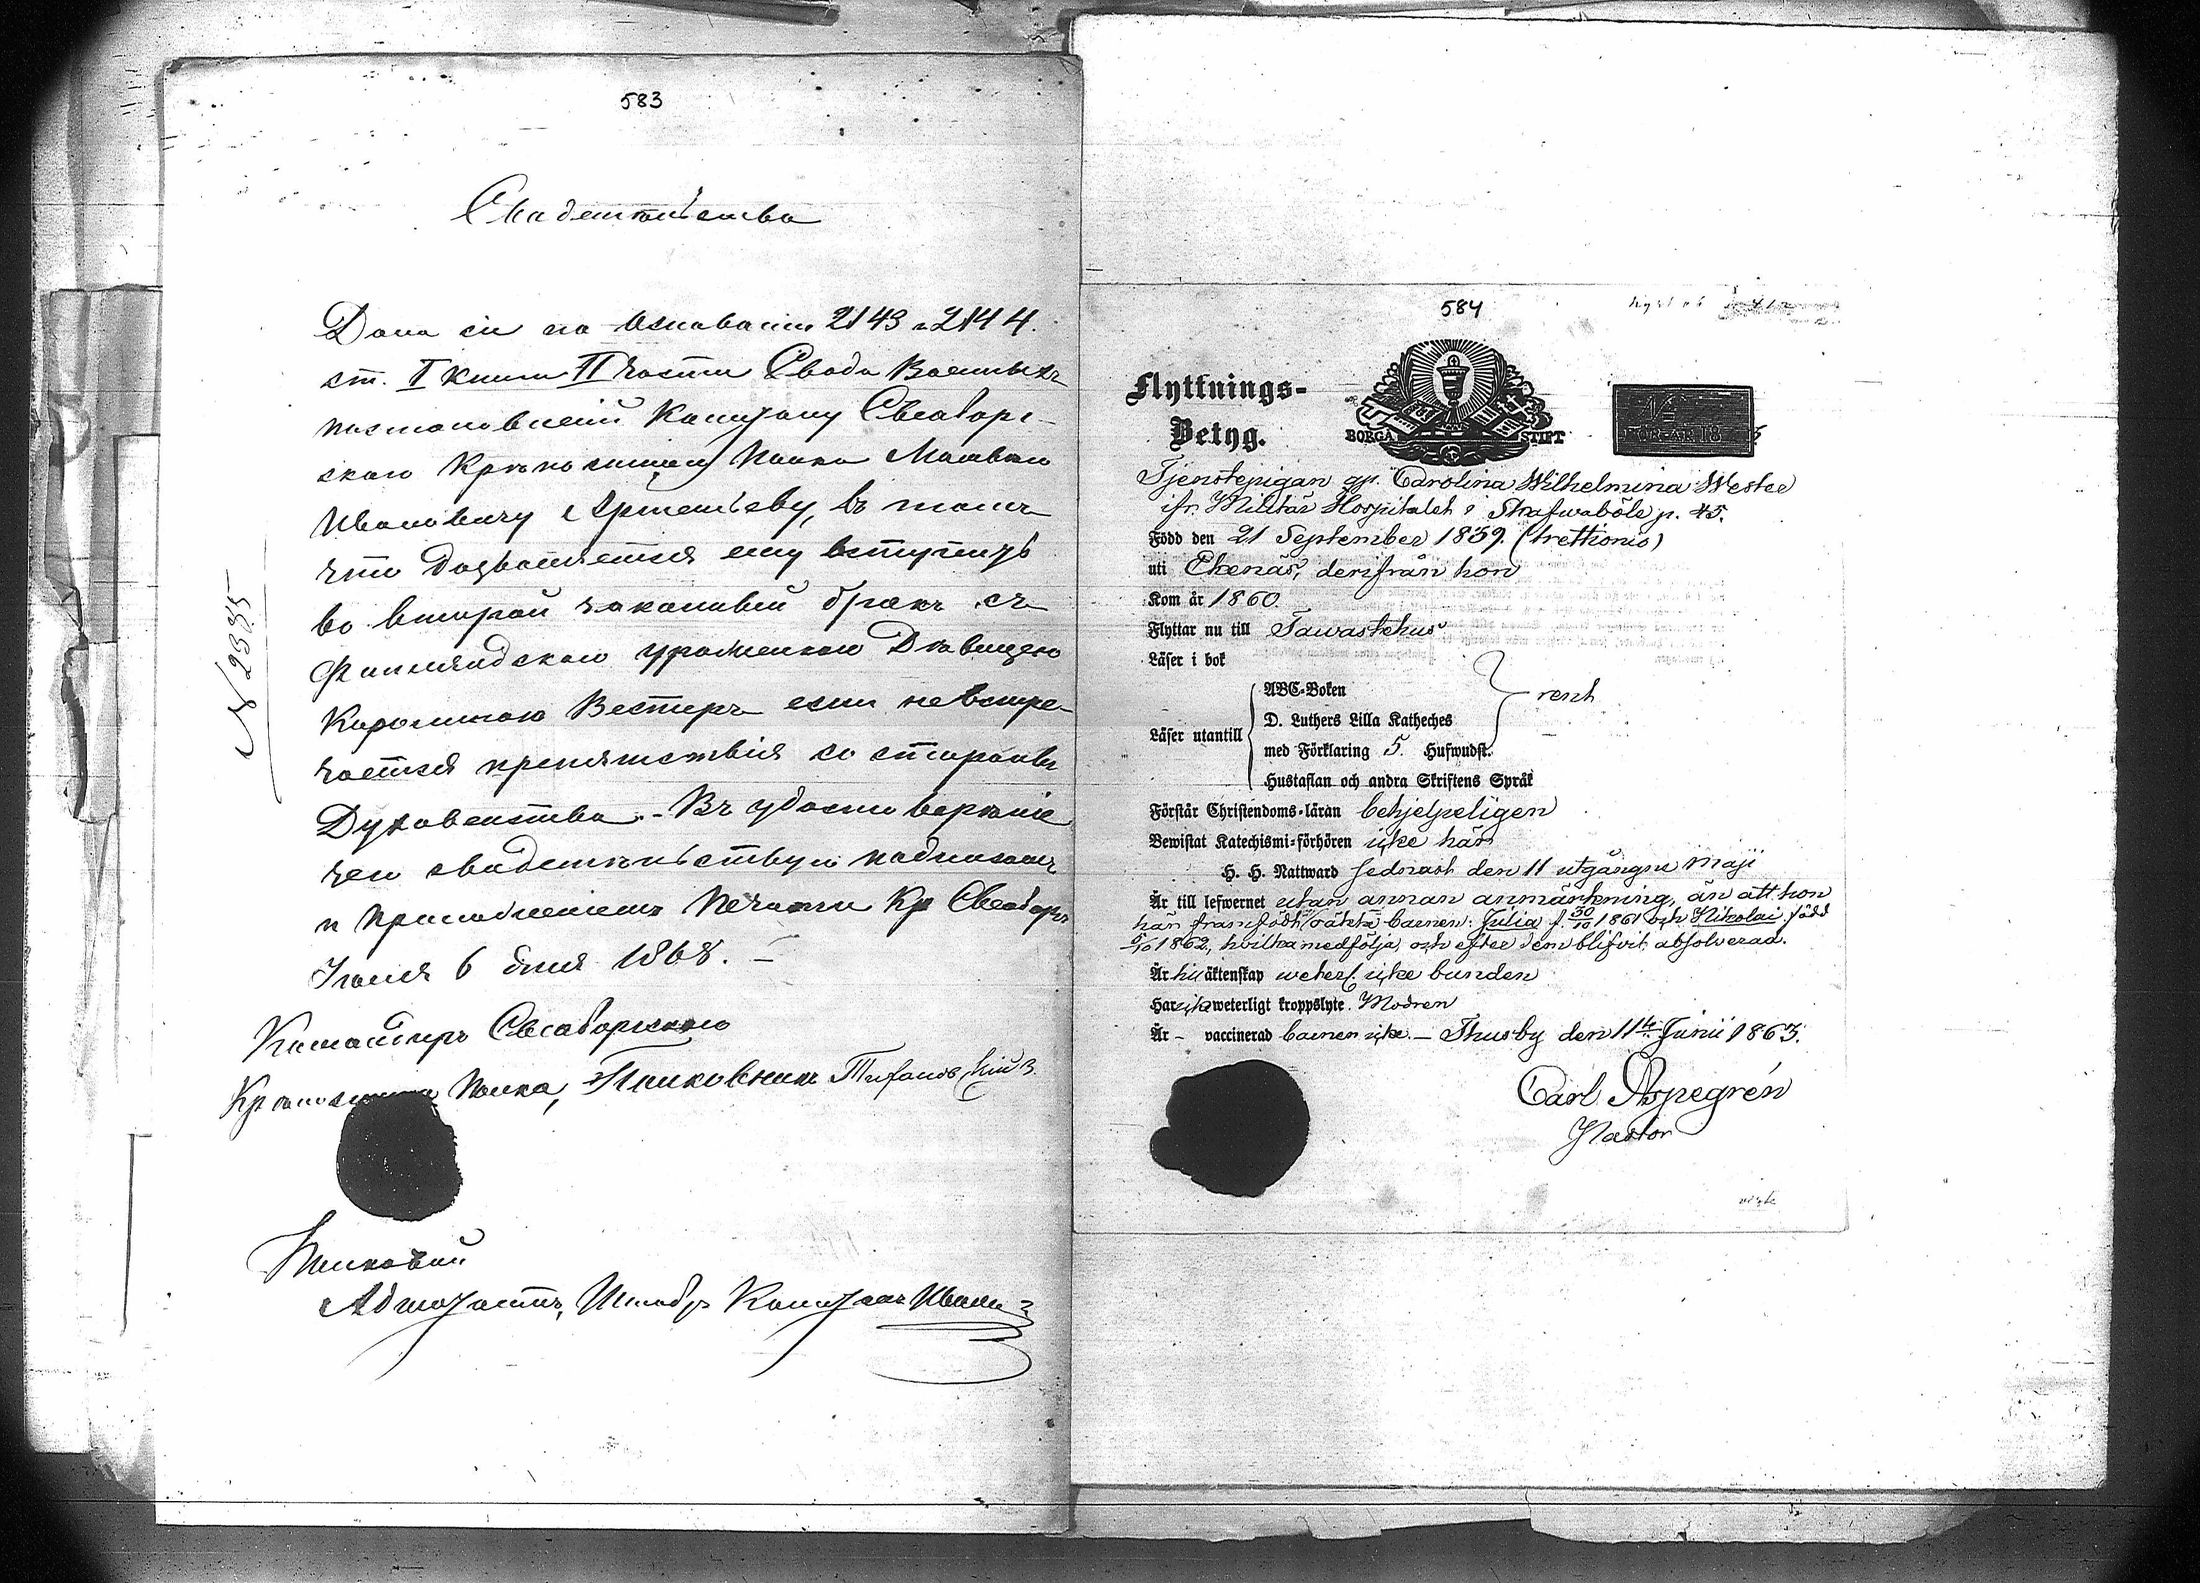 583
Свидетельство
Дано сие на основании 2143 и 2144
ст. I книги II части Свода Военных
постановлений Капитану Свеаборг-
скаго Крепостнаго Полка Матвею
Ивановичу Артемьеву, в том
что дозволяется ему вступить
во второй законный брак с
Финляндскою уроженкою Девицею
Каролиною Вестер если не встре-
чается препятствия со стороны
Духовенства. - В удостоверение
чего свидетельствую подписом
и приложением печати
Июня 6 дня 1868. -
Командир Свеаборгскаго
Крепостнаго Полка, Полковник
Полковой
Адъютант, Штабс Капитан
№ 2335
584
Flyttnings-
Betyg.
BORGÅ STIFT
FÖR ÅR 18
Tjenstepigan gp. Carolina Wilhelmina Wester
ifr. Militär Hospitalet i p. 45.
Född den 21 September 1839. (trettionio)
uti Ekenäs, derifrån hon
Kom år 1860.
Flyttar nu till Tawastehus
Läser i bok
Läser utantill
ABC-Boken
D. Luthers Lilla Katheches
med Förklaring 5. Hufwudst.
Hustaflan och andra Skriftens Språk
rent
Förstår Christendoms-läran behjelpeligen
Bewistat Katechismi-förhören icke här
H. H. Nattward sednast den 11 utgångne Maji
Är till lefwernet utan annan anmärkning, än att hon
här framfödt oäkta barnen: Julia f. 30/10 1861 och Nikolai född
1862, hvilka medfölja, och efter dem blifvit absolverad.
Är till äktenskap weterl. icke bunden
Har icke weterligt kroppslyte. Modren
Är - vaccinerad barnen icke. - Thusby den 11te Junii 1863.
Carl Aspegrén
Pastor